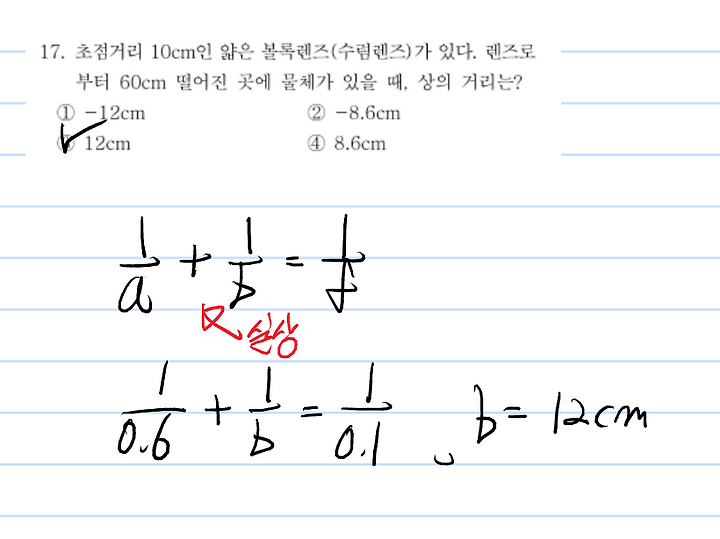 17. 초점거리 10cm인 얇은 볼록렌즈(수렴렌즈)가 있다. 렌즈로
부터 60cm 떨어진 곳에 물체가 있을 때, 상의 거리는?
① -12cm ② -8.6cm
③ 12cm ④ 8.6cm
1/a + 1/b = 1/f
실상
1/0.6 + 1/b = 1/0.1 b = 12cm